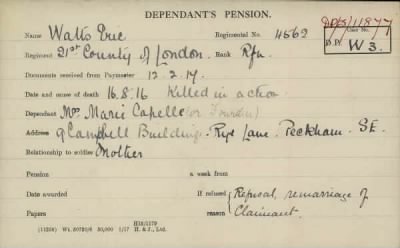 DEPENDANT'S PENSION.
Name Watts Eric Regimental No. 4562
Regiment 21st County of London. Rank Rfn
DP5/11877
Case No.
D.P. W 3.
Documents received from Paymaster 12.2.17.
Date and cause of death 16.8.16 Killed in action
Dependant Mrs Marie Capelle (or
Address 9 Campbell Buildings. Rye Lane. Peckham. S.E.
Relationship to soldier Mother
Pension a week from
Date awarded If refused Refusal, remarriage of
Papers reason Claimant.
H13/1179
(11238) Wt. 50720/6 50,000 1/17 H. & J., Ltd.